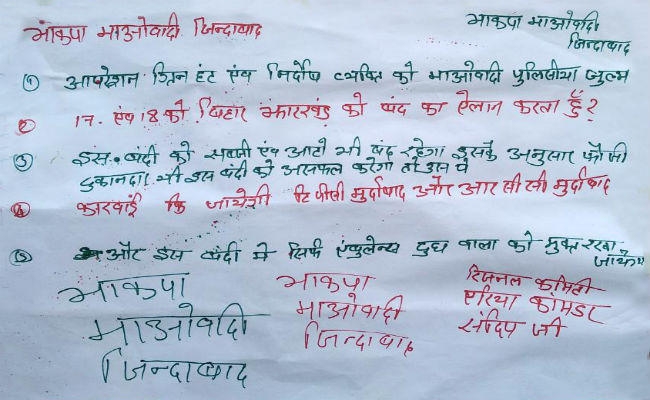 भाकपा माओवादी जिन्दाबाद
भाकपा माओवादी
जिन्दाबाद
① आपरेशन ग्रिन हंट एंव निर्दोष व्यक्ति को माओवादी पुलिसीया जुल्म
② 17. एंव 18 को बिहार झारखंड को बंद का ऐलान करता हुँ?
③ इस. बंदी को सवारी एंव आटो भी बंद रहेगा इसके अनुसार जो भी
दुकानदार भी इस बंदी को असफल करेगा तो उस पे
④ कारवाई कि जायेगी टि पीसी मुर्दाबाद और आर सी सी मुर्दाबाद
⑤ और इस बंदी में सिर्फ एंबुलेन्स दुध वाला को मुक्त रखा
जायेगा
भाकपा
माओवादी
जिन्दाबाद
भाकपा
माओवादी
जिन्दाबाद
रिजनल कमिटी
एरिया कामंडर
संदिप जी